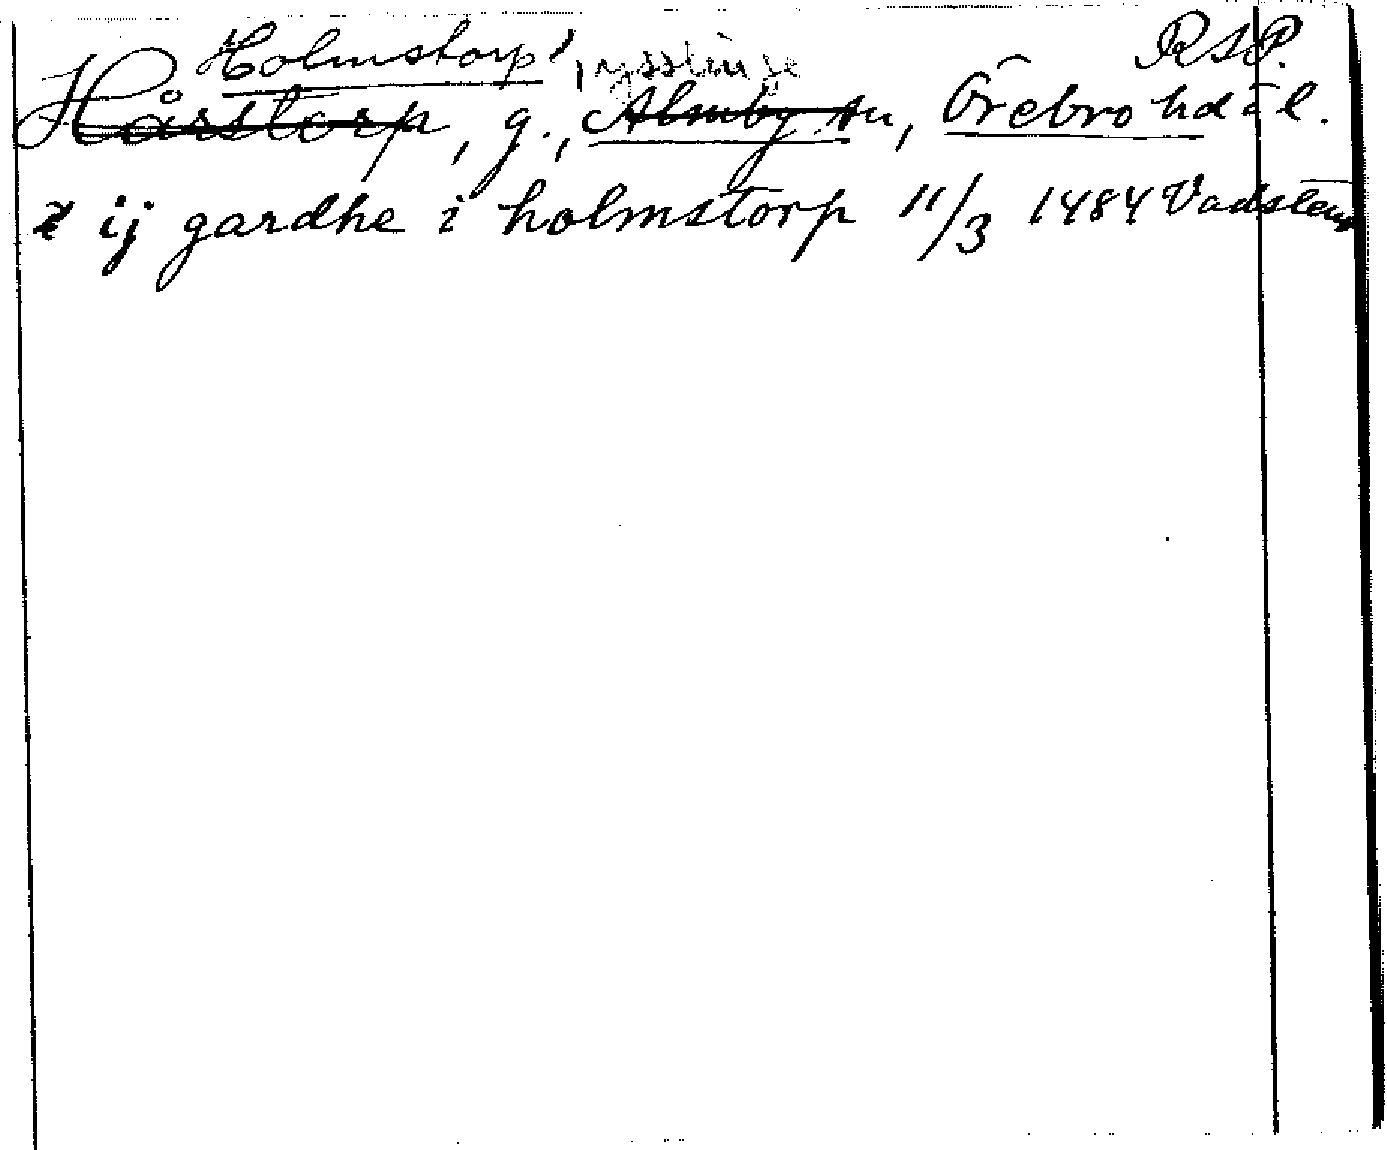 Holmstorp, RSP.
Hårstorp, g., Almby sn, Örebro hd
ij gardhe i holmstorp 11/3 1484 Vadstena